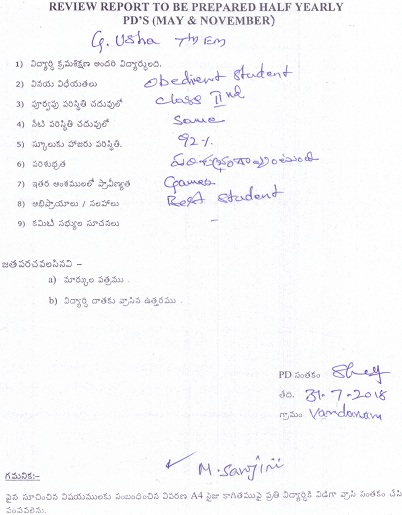 REVIEW REPORT TO BE PREPARED HALF YEARLY
PD'S (MAY & NOVEMBER)
G. Usha 7th EM
1) విద్యార్థి క్రమశిక్షణ అందరి విద్యార్థులది.
2) వినయ విధేయతలు Obedient Student
3) పూర్వపు పరిస్థితి చదువులో Class IInd
4) నేటి పరిస్థితి చదువులో Same
5) స్కూలుకు హాజరు పరిస్థితి. 92%
6) పరిశుభ్రత
7) ఇతర అంశములలో ప్రావీణ్యత Games
8) అభిప్రాయాలు / సలహాలు Best Student
9) కమిటి సభ్యుల సూచనలు -
జతపరచవలసినవి –
a) మార్కుల పత్రము .
b) విద్యార్థి దాతకు వ్రాసిన ఉత్తరము .
PD సంతకం
తేది. 31-7-2018
గ్రామం Vandanam
M. Sanjini
గమనిక:-
పైన సూచించిన విషయములకు సంబంధించిన వివరణ A4 సైజు కాగితముపై ప్రతి విద్యార్థికి విడిగా వ్రాసి సంతకం చేసి
పంపవలెను.